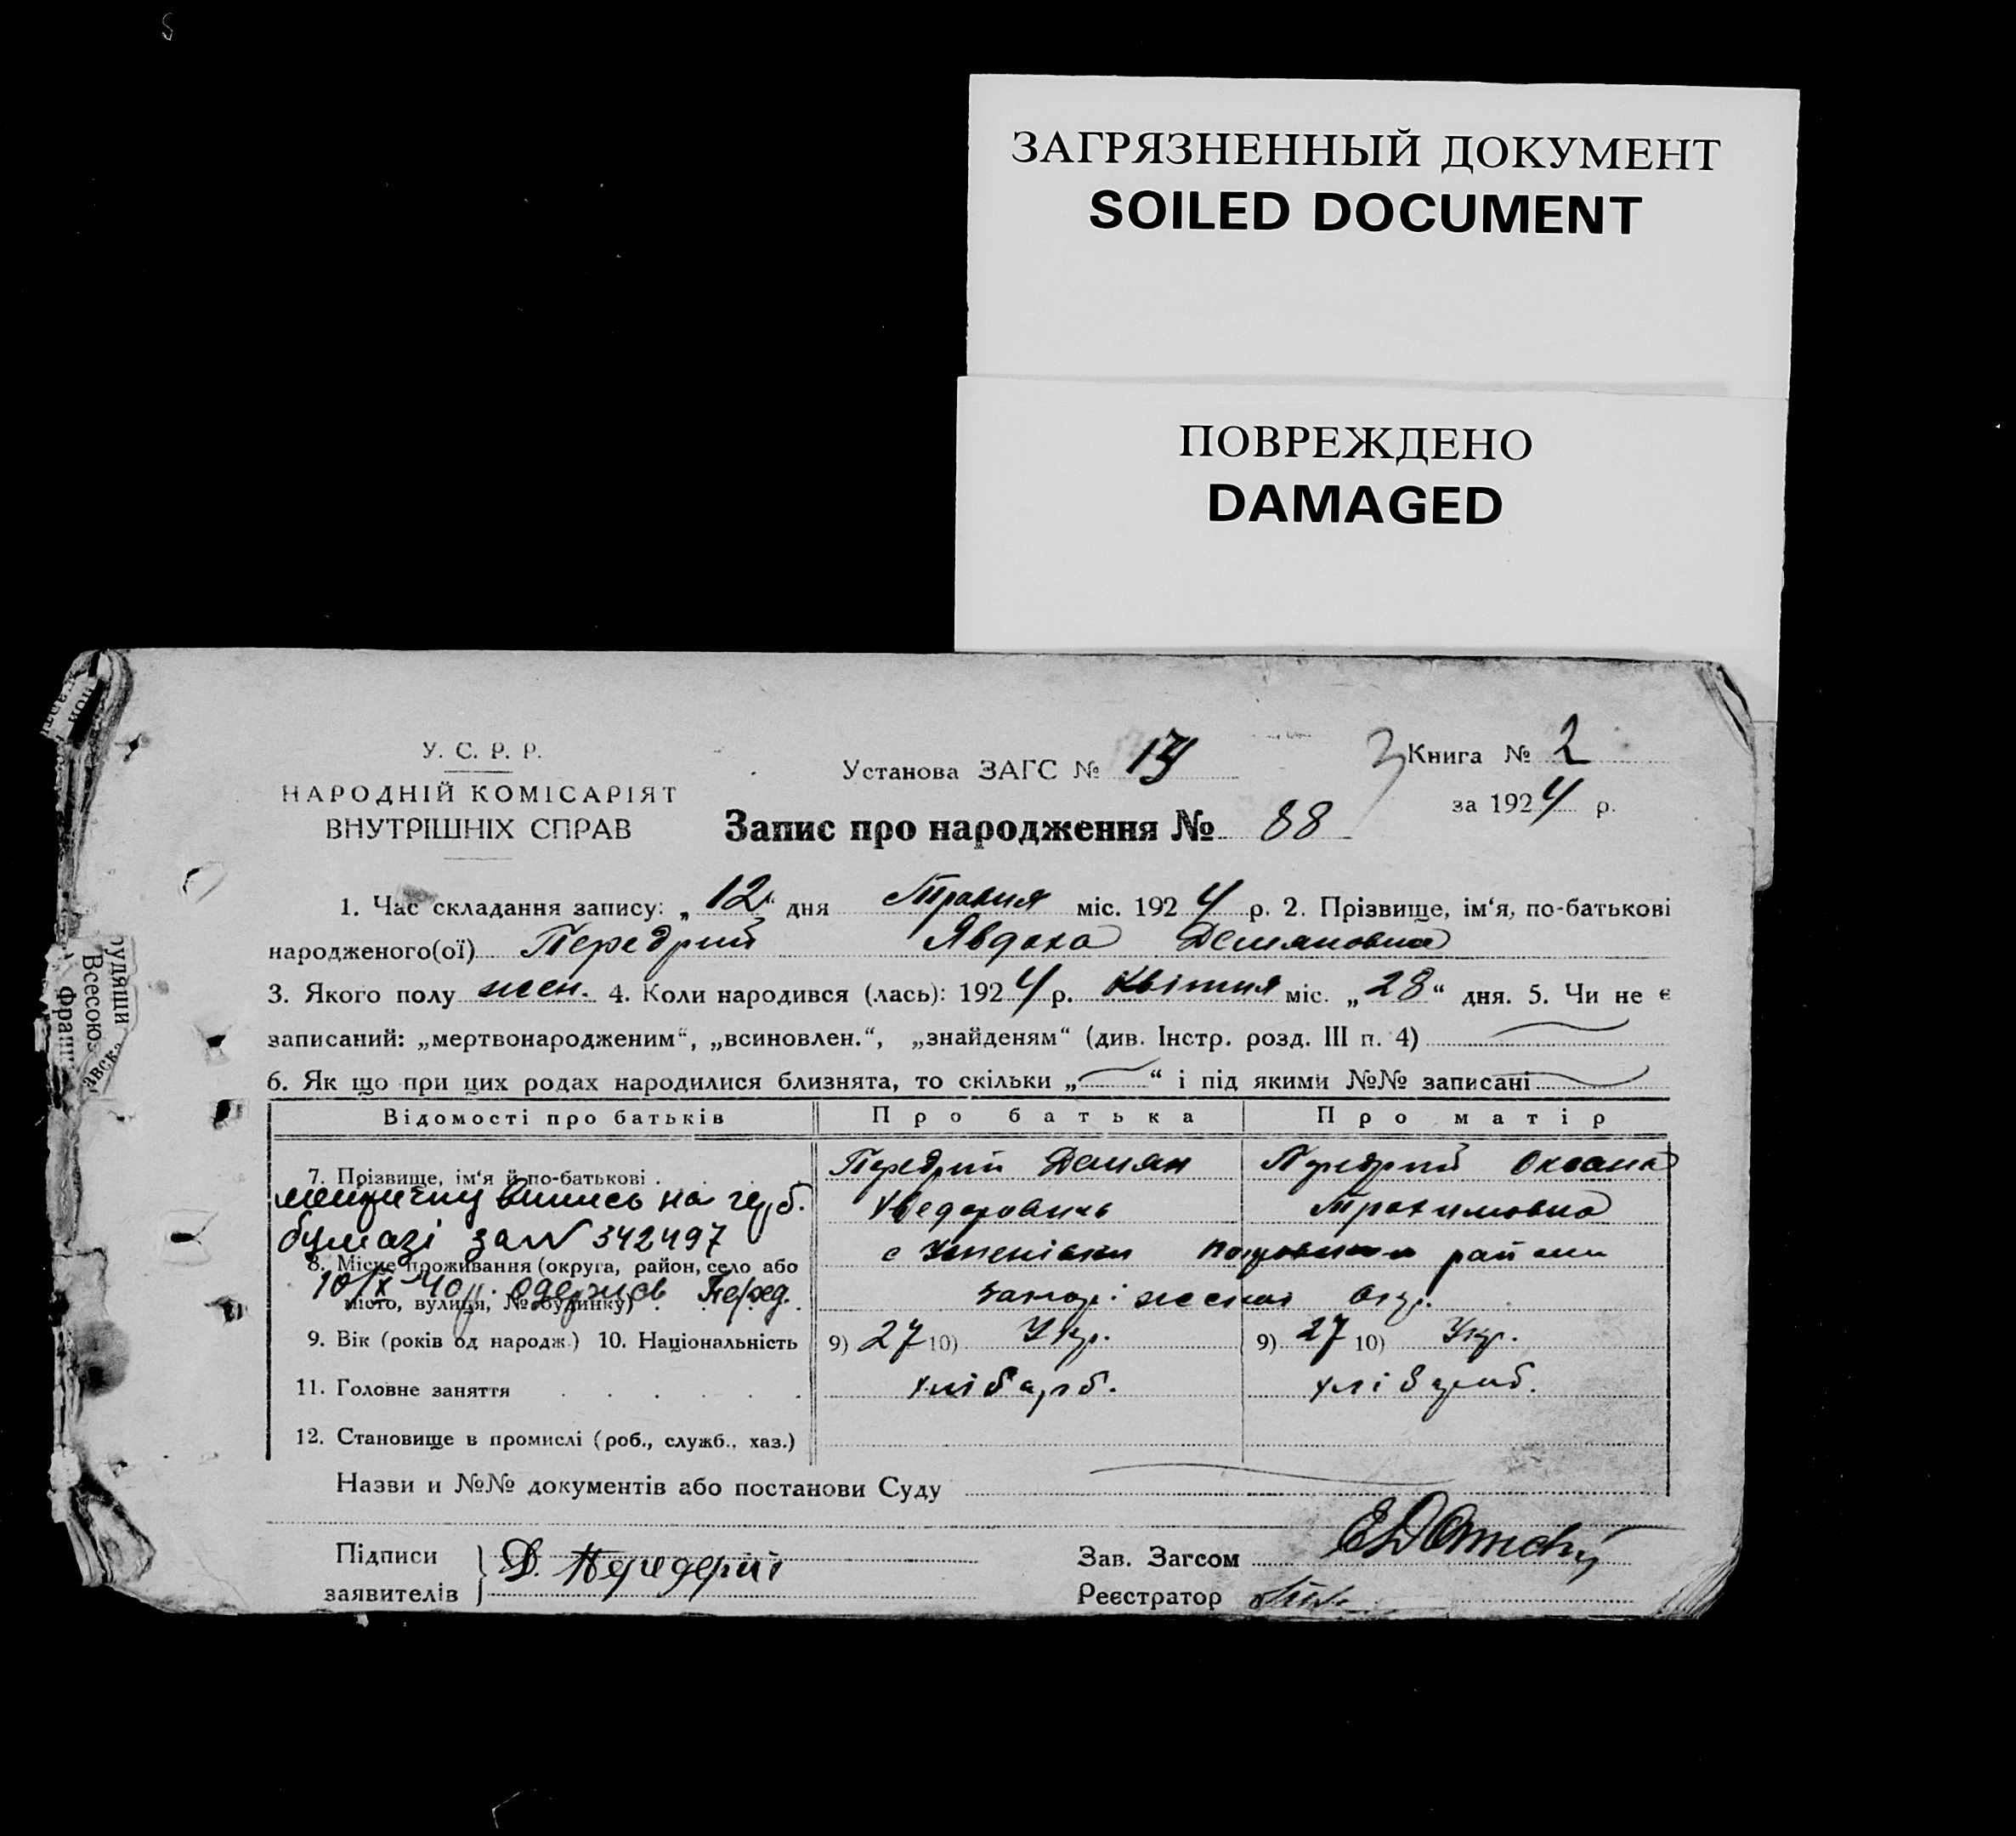 ЗАГРЯЗНЕННЫЙ ДОКУМЕНТ
SOILED DOCUMENT
ПОВРЕЖДЕНО
DAMAGED
У. С. Р. Р.
НАРОДНІЙ КОМІСАРІЯТ
ВНУТРІШНІХ СПРАВ
Установа ЗАГС №
Книга № 2
за 1924 р.
Запис про народження № 88
1. Час складання запису: „12“ дня Травня міс. 1924 р. 2. Прізвище, ім‘я, по-батькові
народженого(ої) Передрий Явдоха Демяновна
3. Якого полу жен. 4. Коли народився (лась): 1924 р. Квітня міс. „28“ дня. 5. Чи не є
записаний: „мертвонародженим“, „всиновлен.“, „знайденям“ (див. Інстр. розд. III п. 4)
6. Як що при цих родах народилися близнята, то скільки „ “ і під якими №№ записані
Відомості про батьків Про батька Про матір
7. Прізвище, ім‘я й по-батькові Передрий Демян Передрий Оксана
випись на герб. Хведорович Трохимовна
бумазі за № 342497
8. Місце проживання (округа, район, село або с районн
10/X 40 р. одержев Перед.
місто, вулиця, № будинку) Запоріжской Окр.
9. Вік (років од народж.) 10. Національність 9) 27 10) Укр. 9) 27 10) Укр.
11. Головне заняття хлібароб. хлібароб.
12. Становище в промислі (роб., служб., хаз.)
Назви и №№ документів або постанови Суду
Підписи
заявителів
Д. Передерий
Зав. Загсом
Реєстратор
рудящи
Всесоюз
Франц
авск